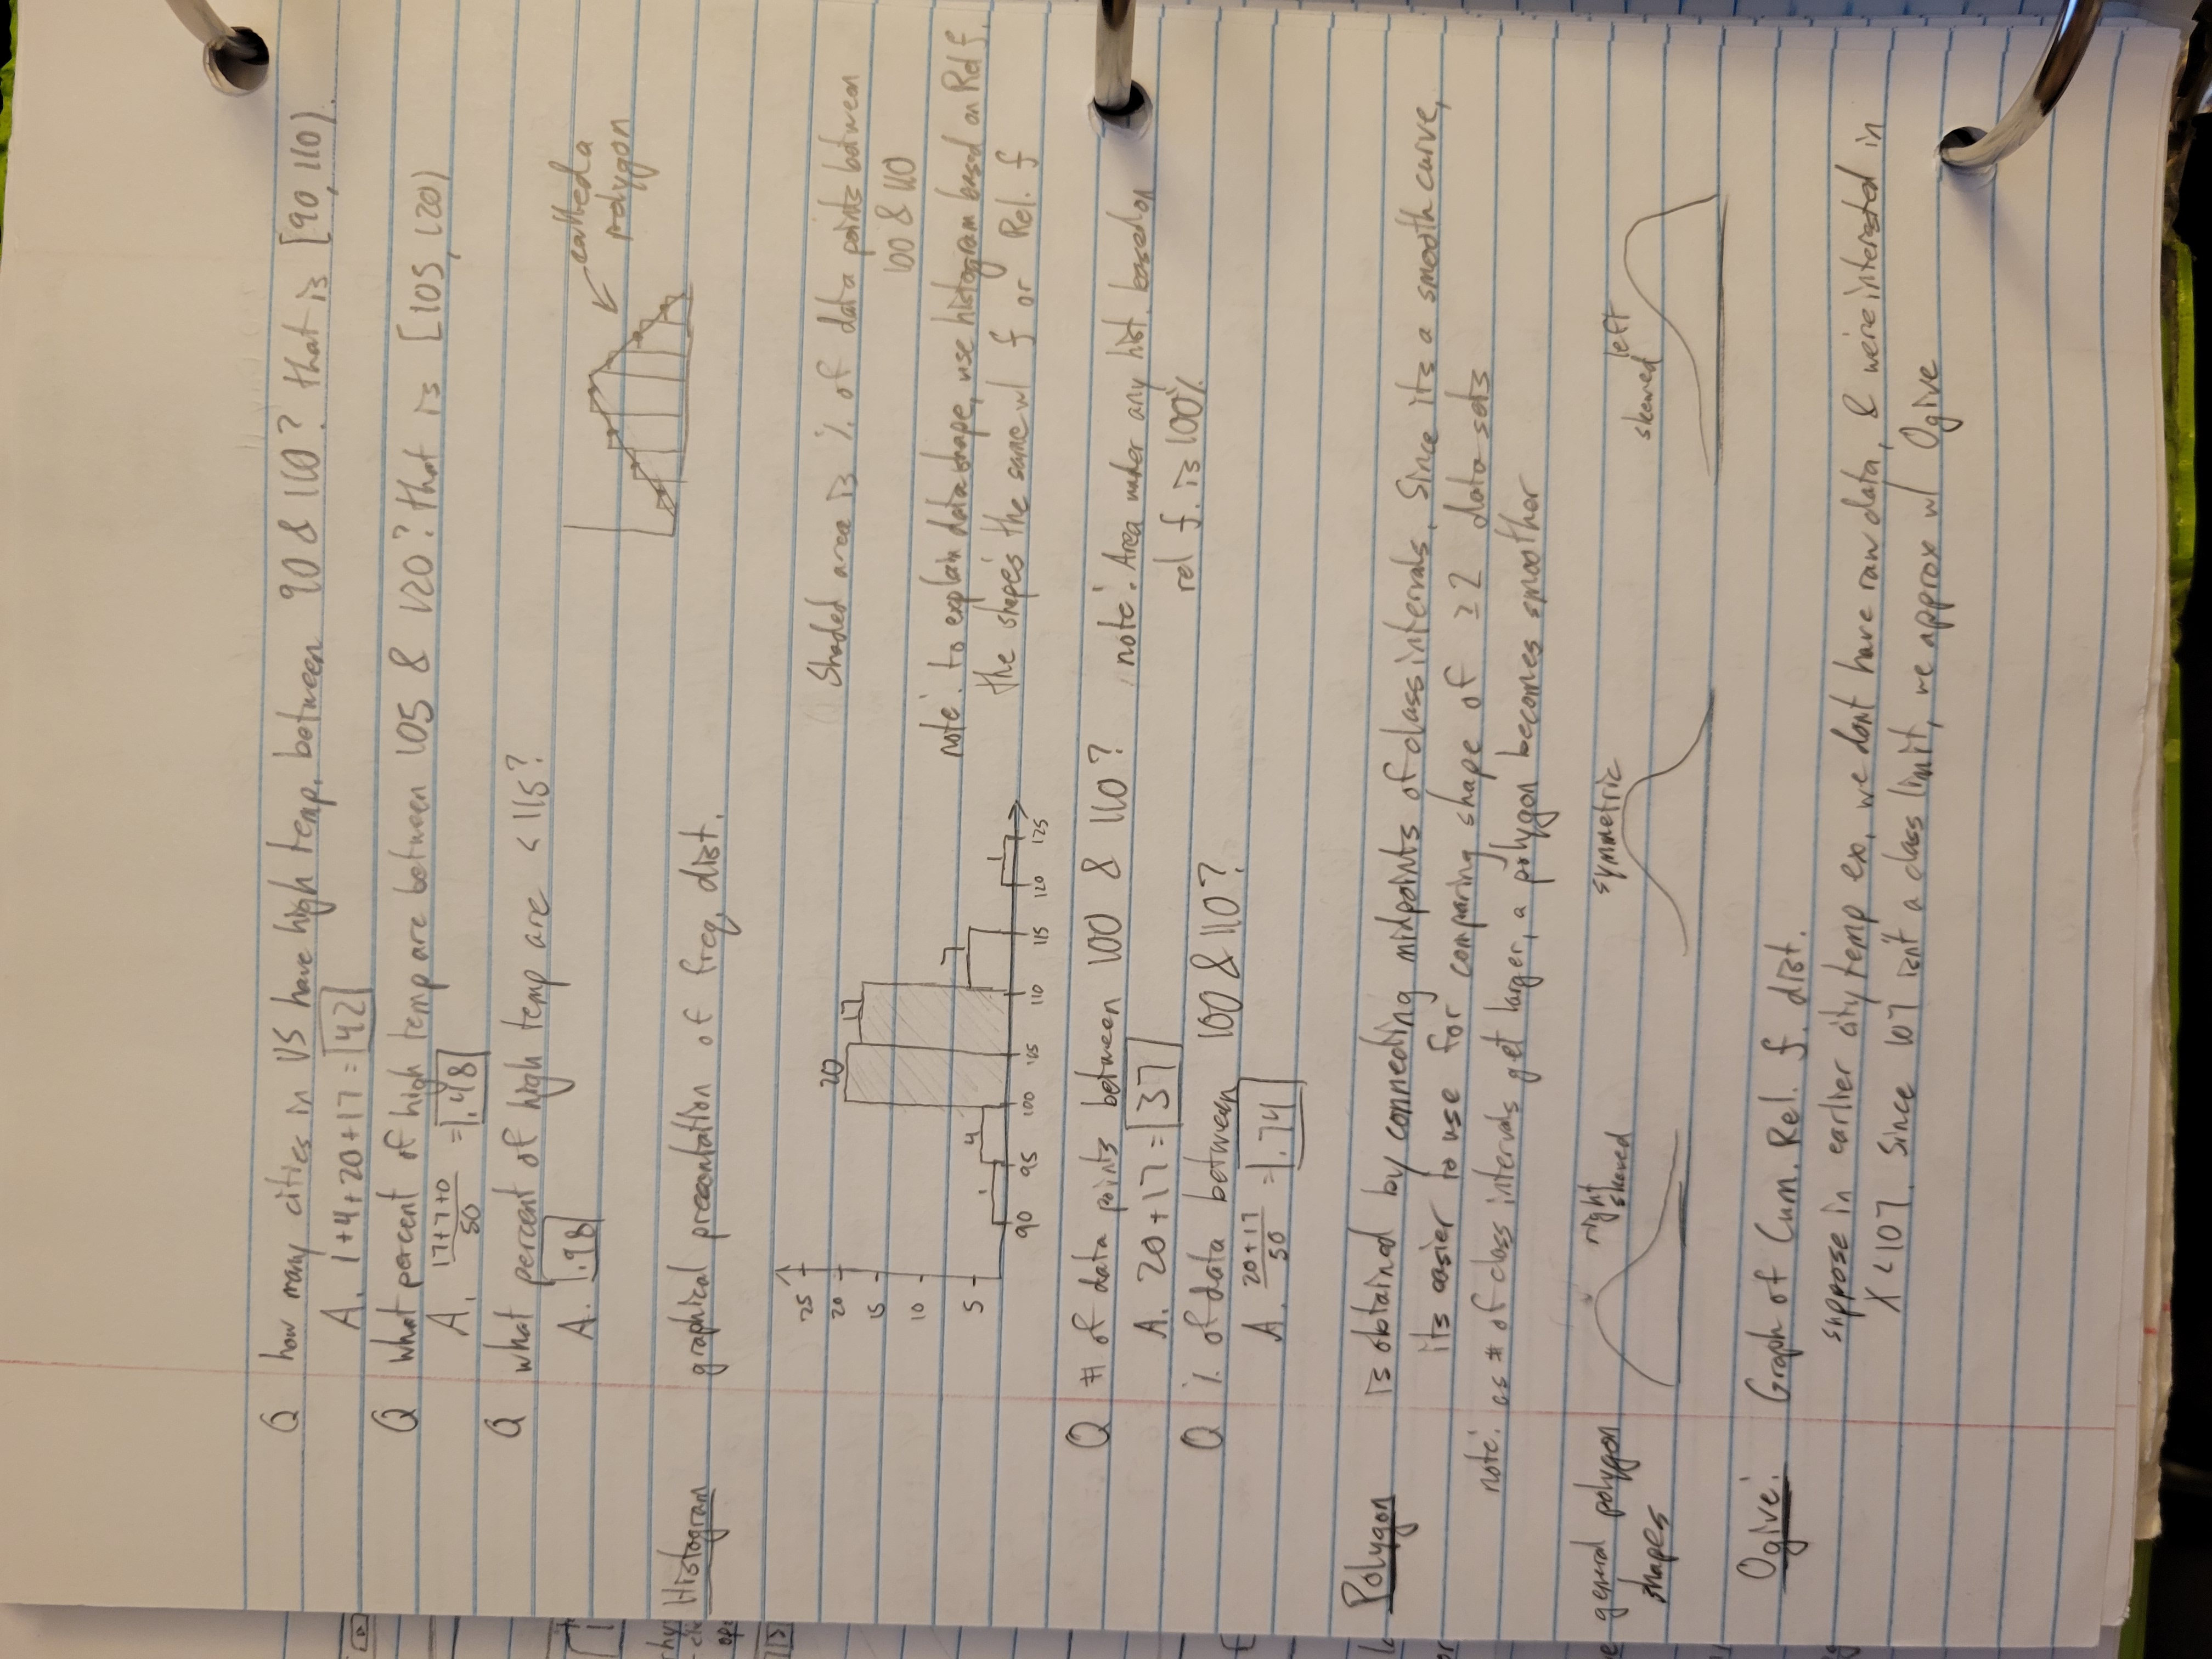 Q how many cities in US have high temp. between 90 & 110? that is [90, 110).
A. 1+4+20+17 = 42
Q what percent of high temp are between 105 & 120? that is [105, 120)
A. 17+7+0/50 = .48
Q what percent of high temp are < 115?
A. .98
called a
polygon
Histogram graphical presentation of freq. dist.
25
20
15
10
5
1
4
20
17
7
1
90 95 100 105 110 115 120 125
Shaded area is % of data points between
100 & 110
note: to explain data shape, use histogram based on Rel f.
the shape's the same w/ f or Rel. f
Q # of data points between 100 & 110?
A. 20+17 = 37
note: Area under any hist. based on
rel f. is 100%
Q % of data between 100 & 110?
A. 20+17/50 = .74
Polygon is obtained by connecting midpoints of class intervals. Since its a smooth curve,
its easier to use for comparing shape of ≥2 data sets
note: as # of class intervals get larger, a polygon becomes smoother
general polygon
shapes
right
skewed
symmetric
left
skewed
Ogive: Graph of Cum. Rel. f. dist.
suppose in earlier city temp ex, we dont have raw data, & we're interested in
X < 107. Since 107 isn't a class limit, we approx w/ Ogive